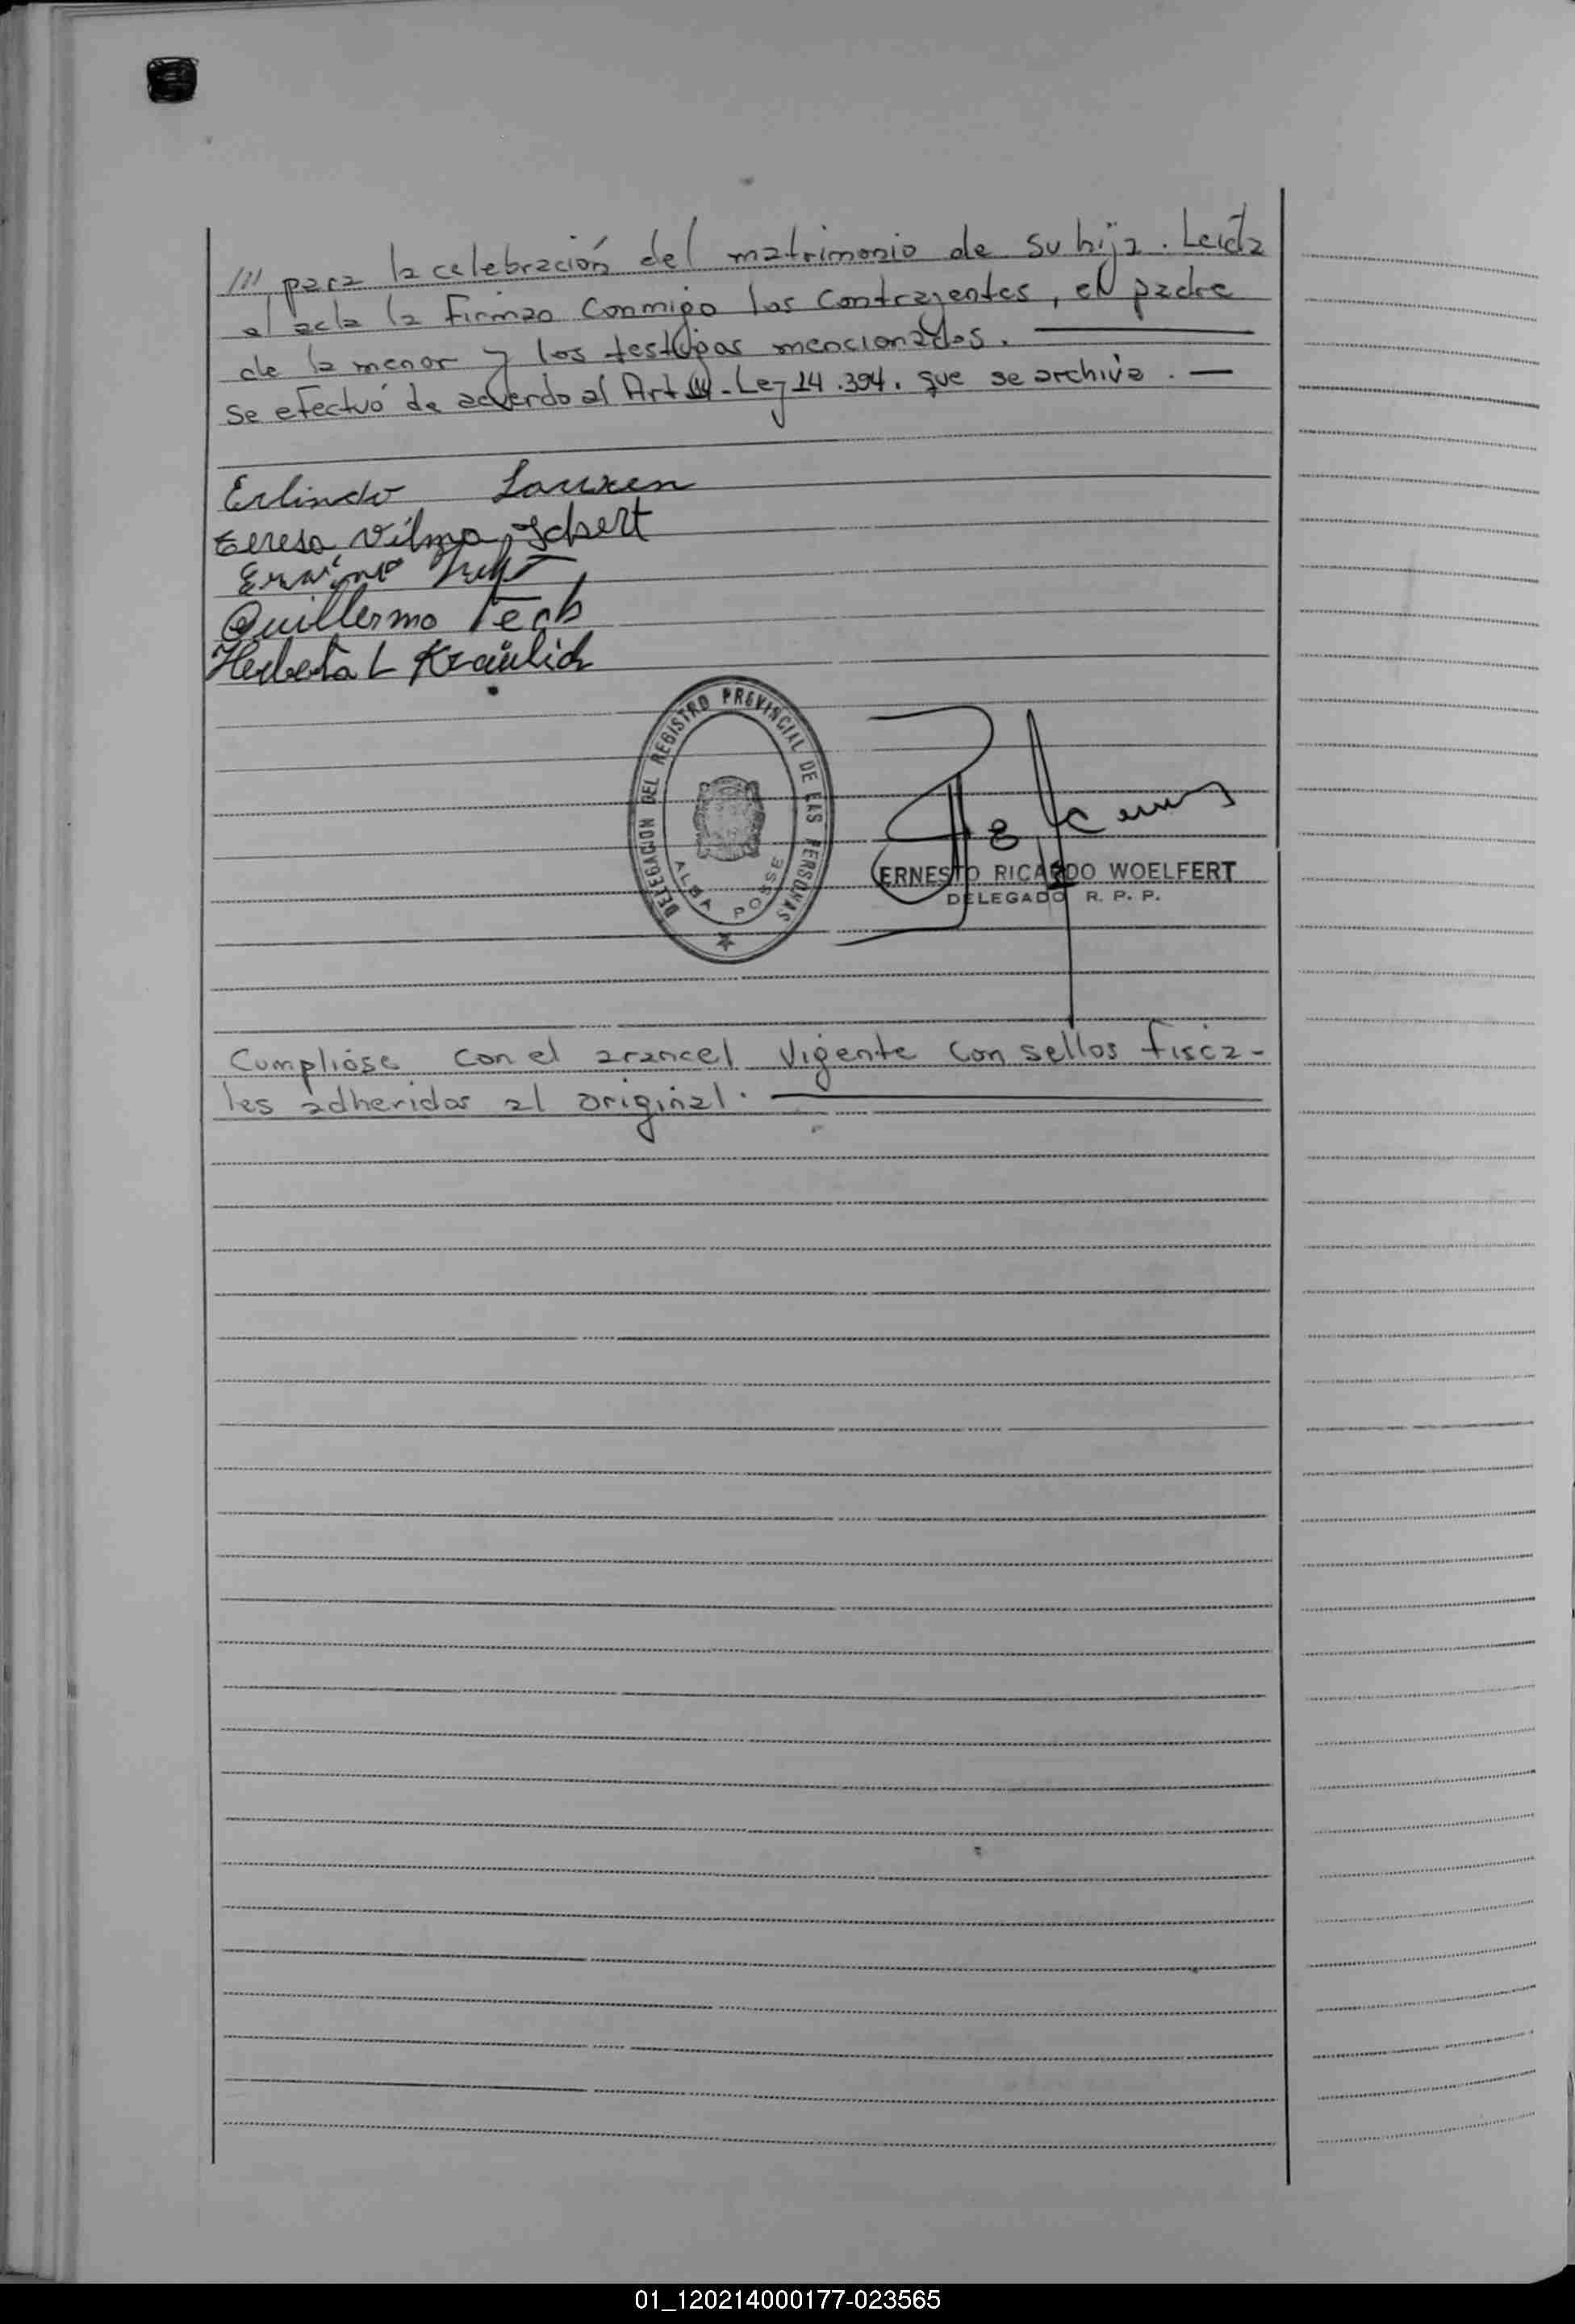 /// para la celebración del matrimonio de su hija. Leida
el acta la Firman Conmigo los Contrayentes, el padre
de la menor y los testigos mencionados.
Se efectuó de acuerdo al Art - Ley 14.394. que se archiva. —
Erlindo Lauxen
Teresa Vilma
Guillermo
DELEGACION DEL REGISTRO PROVINCIAL DE LAS PERSONAS
ALBA POSSE
ERNESTO RICARDO WOELFERT
DELEGADO R. P. P.
Cumplióse con el arancel Vigente con sellos fisca-
les adheridos al original.
01_120214000177-023565